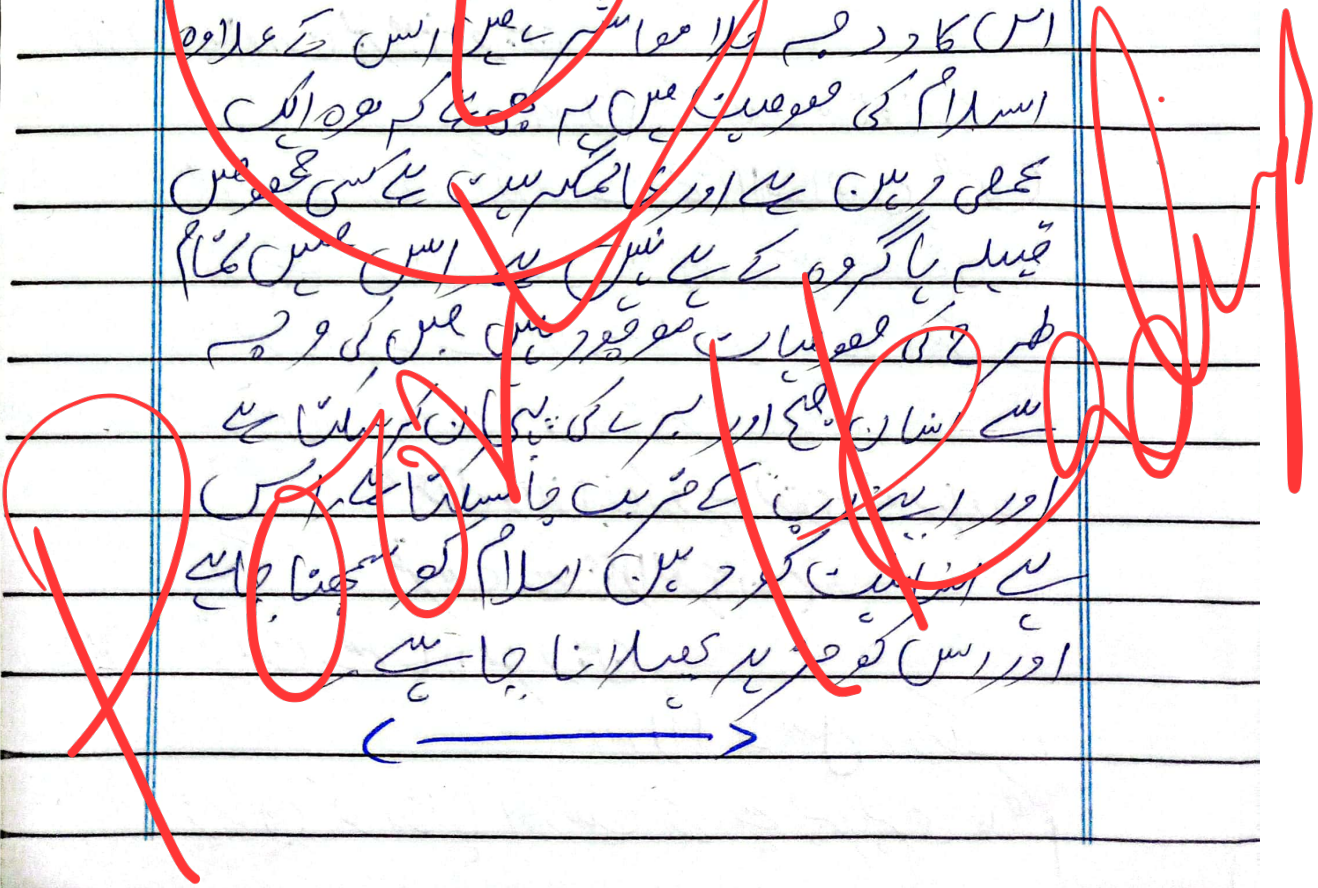 اس کا درجہ ملا معاشرے میں اس کے علاوہ
اسلام کی خصوصیت میں یہ بھی ہے کہ وہ ایک
عملی دین ہے اور عالمگیریت ہے کسی مخصوص
قبیلہ یا گروہ کے لیے نہیں ہے اس میں تمام
طرح کی خصوصیات موجود ہیں جس کی وجہ
سے انسان صحیح اور برے کی پہچان کر سکتا ہے
اور اپنے رب کے قریب جا سکتا ہے۔ اس
لیے انسانیت کو دین اسلام کو سمجھنا چاہیے
اور اس کو مزید پھیلانا چاہیے۔
Poor Headings